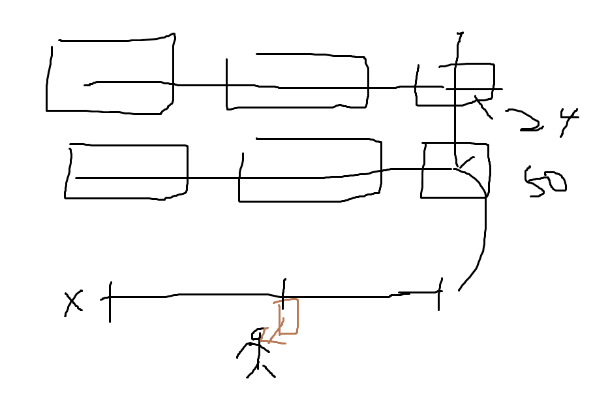 24
50
X